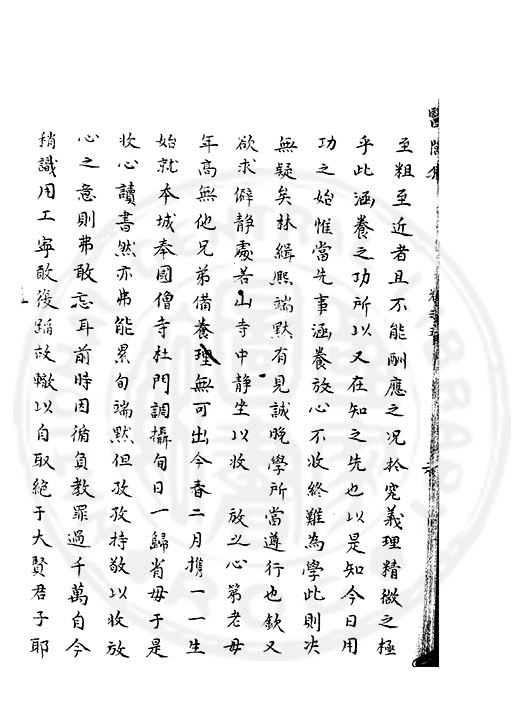 醫閭集
至粗至近者且不能酬應之况於究義理精微之極
乎此涵養之功所以又在知之先也以是知今日用
功之始惟當先事涵養放心不收終難為學此則决
無疑矣林緝熙端默有見誠晚學所當遵行也欽又
欲求僻静處若山寺中静坐以收放之心第老母
年高無他兄弟備養理無可出今春二月携一一生
始就本城奉國僧寺杜門調攝旬日一歸省母于是
收心讀書然亦弗能累旬端默但孜孜持敬以收放
心之意則弗敢忘耳前時因循負教罪過千萬自今
稍識用工寧敢後蹈故轍以自取絶于大賢君子耶